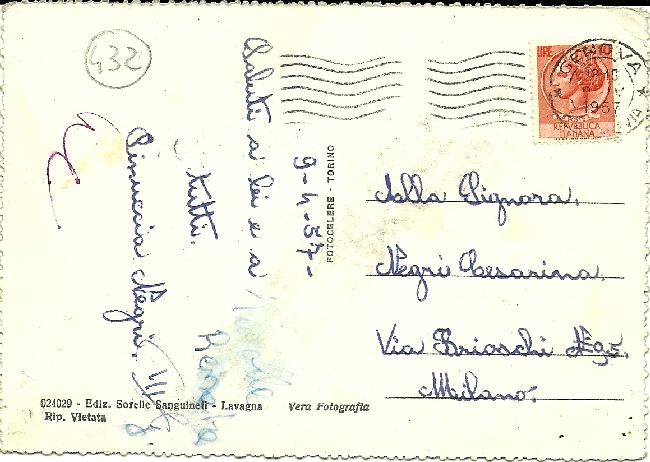 432
9-4-57-
Saluti a lei e a
tutti.
Pinuccia Negri.
Renata
FOTOCELERE - TORINO
LIRE
REPVBBLICA
ITALIANA
GENOVA
1957
Alla Signora,
Negri Cesarina,
Via Brioschi
Milano.
024029 - Ediz. Sorelle Sanguineti - Lavagna
Vera Fotografia
Rip. Vietata